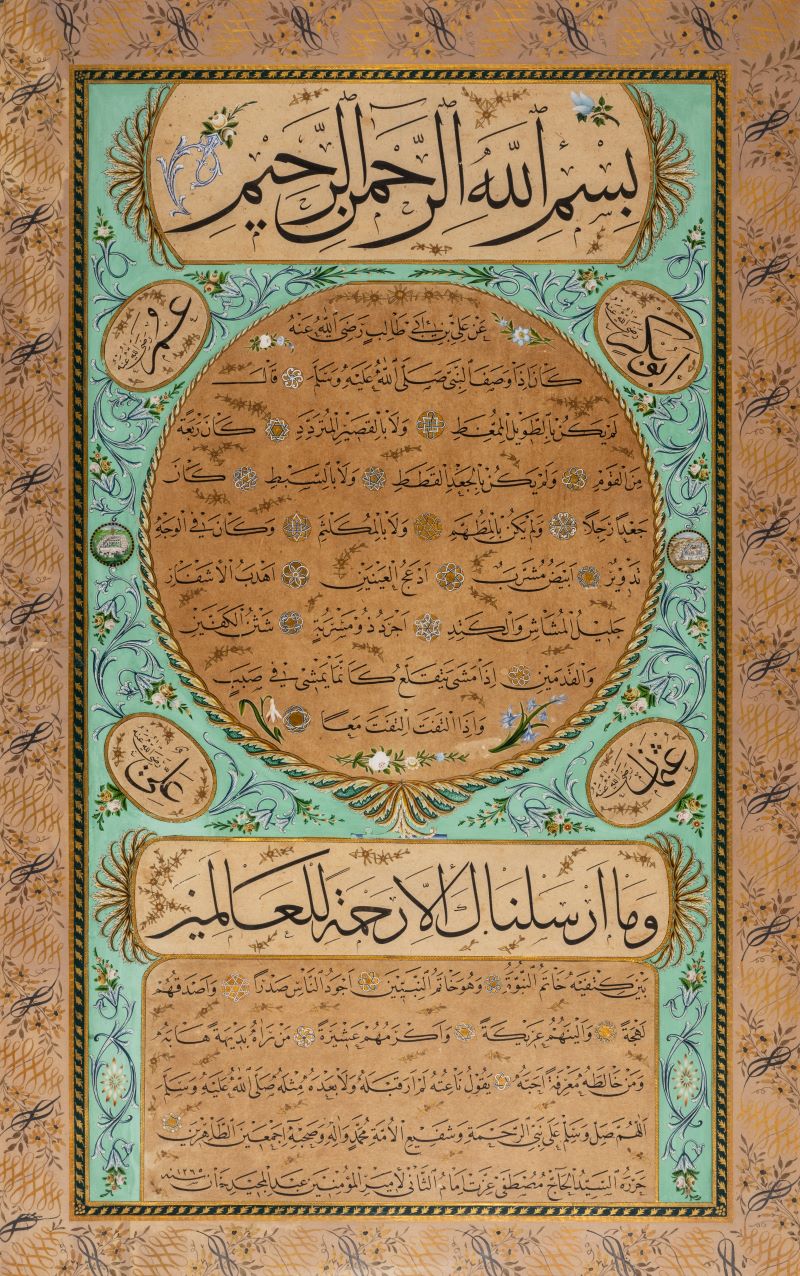 بِسْمِ اللّٰهِ الرَّحْمٰنِ الرَّحِيمِ
ابو بكر رضي الله عنه
عمر رضي الله عنه
عَنْ عَلِيِّ بْنِ اَبِي طَالِبٍ رَضِيَ اللّٰهُ عَنْهُ
كَانَ اِذَا وَصَفَ النَّبِيَّ صَلَّى اللّٰهُ عَلَيْهِ وَسَلَّمَ قَالَ
لَمْ يَكُنْ بِالطَّوِيلِ الْمُمَّغِطِ وَلَا بِالْقَصِيرِ الْمُتَرَدِّدِ كَانَ رَبْعَةً
مِنَ الْقَوْمِ وَلَمْ يَكُنْ بِالْجَعْدِ الْقَطَطِ وَلَا بِالسَّبِطِ كَانَ
جَعْدًا رَجِلًا وَلَمْ يَكُنْ بِالْمُطَهَّمِ وَلَا بِالْمُكَلْثَمِ وَكَانَ فِي الْوَجْهِ
تَدْوِيرٌ اَبْيَضُ مُشْرَبٌ اَدْعَجُ الْعَيْنَيْنِ اَهْدَبُ الْاَشْفَارِ
جَلِيلُ الْمُشَاشِ وَالْكَتَدِ اَجْرَدُ ذُو مَسْرُبَةٍ شَثْنُ الْكَفَّيْنِ
وَالْقَدَمَيْنِ اِذَا مَشَى يَتَقَلَّعُ كَاَنَّمَا يَمْشِي فِي صَبَبٍ
وَاِذَا الْتَفَتَ الْتَفَتَ مَعًا
عثمان رضي الله عنه
علي رضي الله عنه
وَمَا اَرْسَلْنَاكَ اِلَّا رَحْمَةً لِلْعَالَمِينَ
بَيْنَ كَتِفَيْهِ خَاتَمُ النُّبُوَّةِ وَهُوَ خَاتَمُ النَّبِيِّينَ اَجْوَدُ النَّاسِ صَدْرًا وَاَصْدَقُهُمْ
لَهْجَةً وَاَلْيَنُهُمْ عَرِيكَةً وَاَكْرَمُهُمْ عَشِيرَةً مَنْ رَاٰهُ بَدِيهَةً هَابَهُ
وَمَنْ خَالَطَهُ مَعْرِفَةً اَحَبَّهُ يَقُولُ نَاعِتُهُ لَمْ اَرَ قَبْلَهُ وَلَا بَعْدَهُ مِثْلَهُ صَلَّى اللّٰهُ عَلَيْهِ وَسَلَّمَ
اَللّٰهُمَّ صَلِّ وَسَلِّمْ عَلَى نَبِيِّ الرَّحْمَةِ وَشَفِيعِ الْاُمَّةِ مُحَمَّدٍ وَاٰلِهِ وَصَحْبِهِ اَجْمَعِينَ الطَّاهِرِينَ
حَرَّرَهُ السَّيِّدُ الْحَاجُّ مُصْطَفَى عِزَّتْ اِمَامُ الثَّانِي لِاَمِيرِ الْمُؤْمِنِينَ عَبْدِ الْمَجِيدِ خَانْ سنة ١٢٦٥